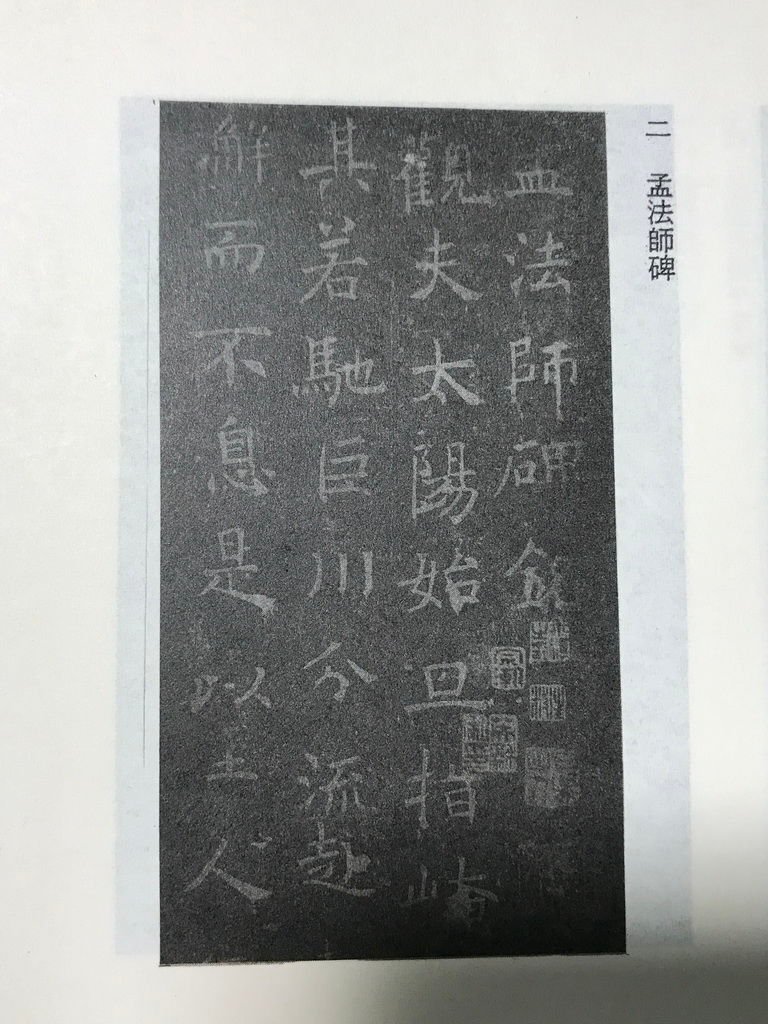 二 孟法師碑
孟法師碑銘
觀夫太陽始旦指
其若馳巨川分流赴
澥而不息是以至人